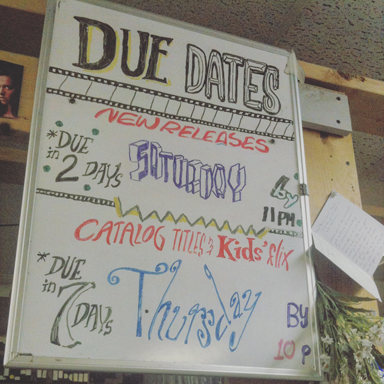 DUE DATES
NEW RELEASES
*DUE in 2 DAYS
SATURDAY
by 11PM
CATALOG TITLES & Kids' flix
*DUE in 7 DAYS
Thursday
BY 10 P